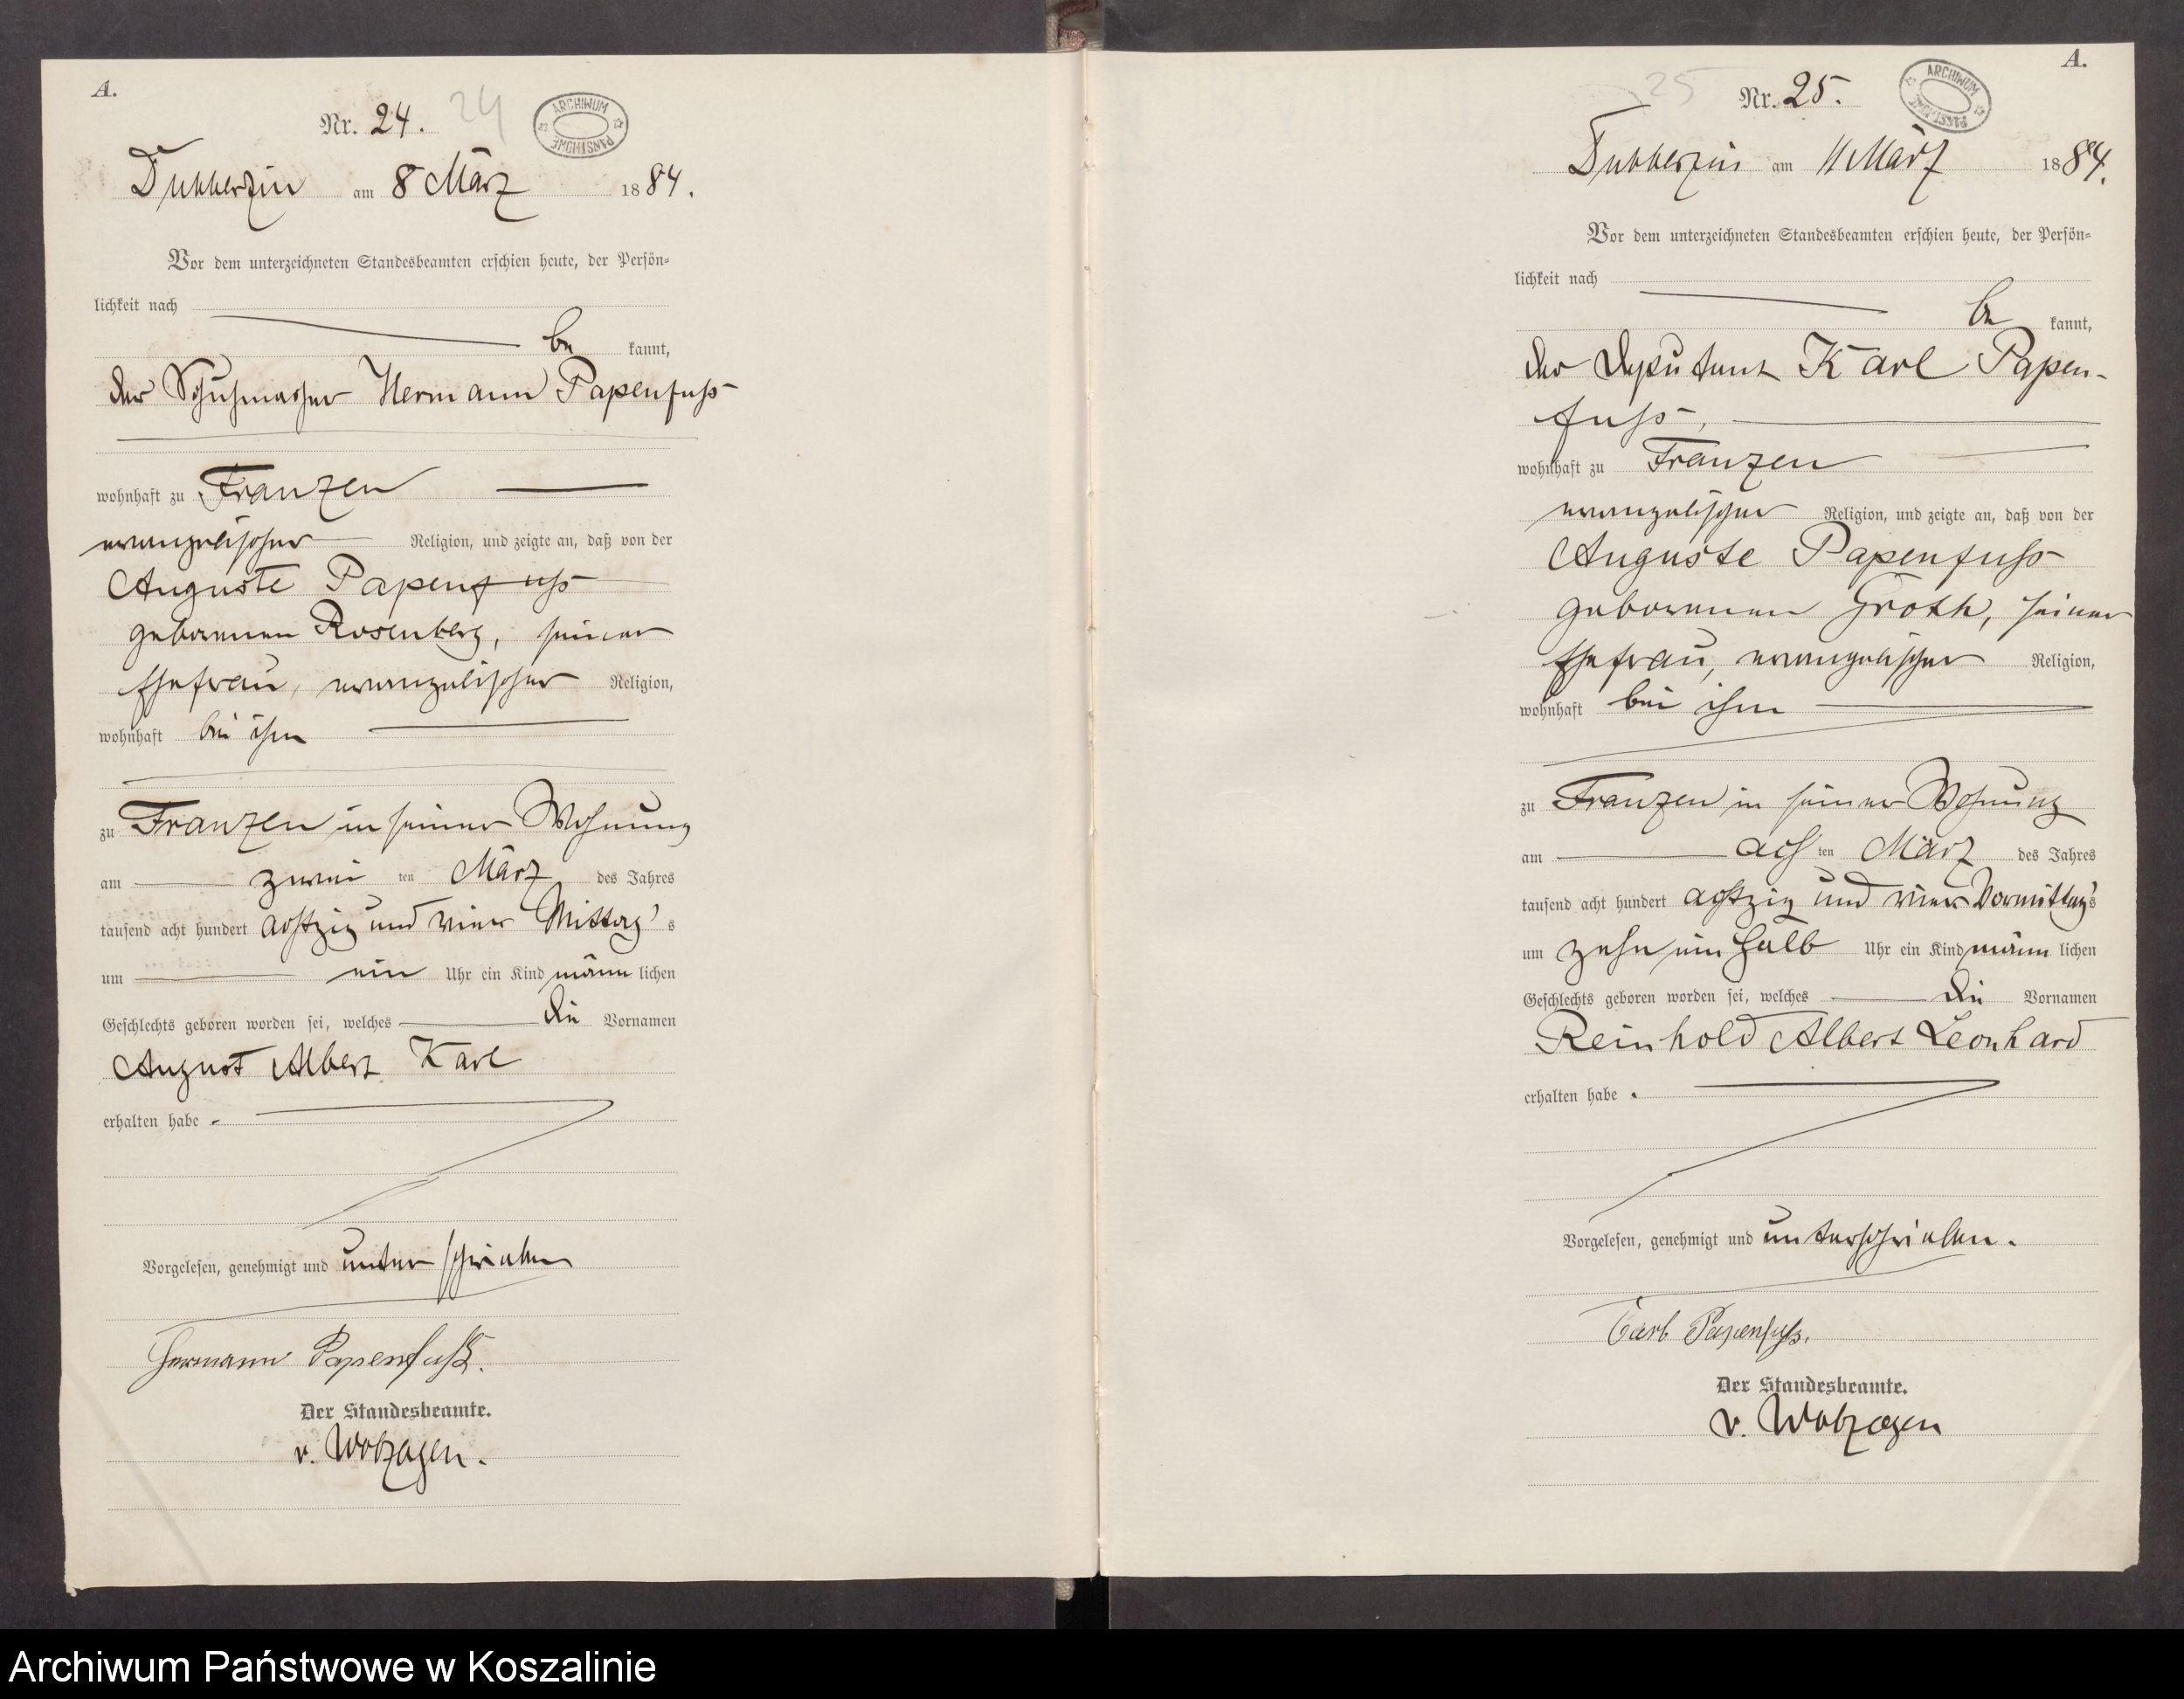 A.
Nr. 24. 24
ARCHIWUM PAŃSTWOWE
Dubberzin am 8 März 1884.
Vor dem unterzeichneten Standesbeamten erschien heute, der Persön-
lichkeit nach
be kannt,
der Schuhmacher Hermann Papenfuss
wohnhaft zu Franzen
evangelischer Religion, und zeigte an, daß von der
Auguste Papenfuss
geborenen Rosenberg, seiner
Ehefrau, evangelischer Religion,
wohnhaft bei ihm
zu Franzen in seiner Wohnung
am zwei ten März des Jahres
tausend acht hundert achtzig und vier Mittag's
um ein Uhr ein Kind männ lichen
Geschlechts geboren worden sei, welches die Vornamen
August Albert Karl
erhalten habe.
Vorgelesen, genehmigt und unterschrieben
Hermann Papenfuß.
Der Standesbeamte.
v. Wolzogen.
A.
25 Nr. 25.
ARCHIWUM PAŃSTWOWE
Dubberzin am 11 März 1884.
Vor dem unterzeichneten Standesbeamten erschien heute, der Persön-
lichkeit nach
be kannt,
der Deputant Karl Papen-
fuss,
wohnhaft zu Franzen
evangelischer Religion, und zeigte an, daß von der
Auguste Papenfuss
geborenen Groth, seiner
Ehefrau, evangelischer Religion,
wohnhaft bei ihm
zu Franzen in seiner Wohnung
am ach ten März des Jahres
tausend acht hundert achtzig und vier Vormittag's
um zehn ein halb Uhr ein Kind männ lichen
Geschlechts geboren worden sei, welches die Vornamen
Reinhold Albert Leonhard
erhalten habe.
Vorgelesen, genehmigt und unterschrieben.
Carl Papenfuß.
Der Standesbeamte.
v. Wolzogen
Archiwum Państwowe w Koszalinie